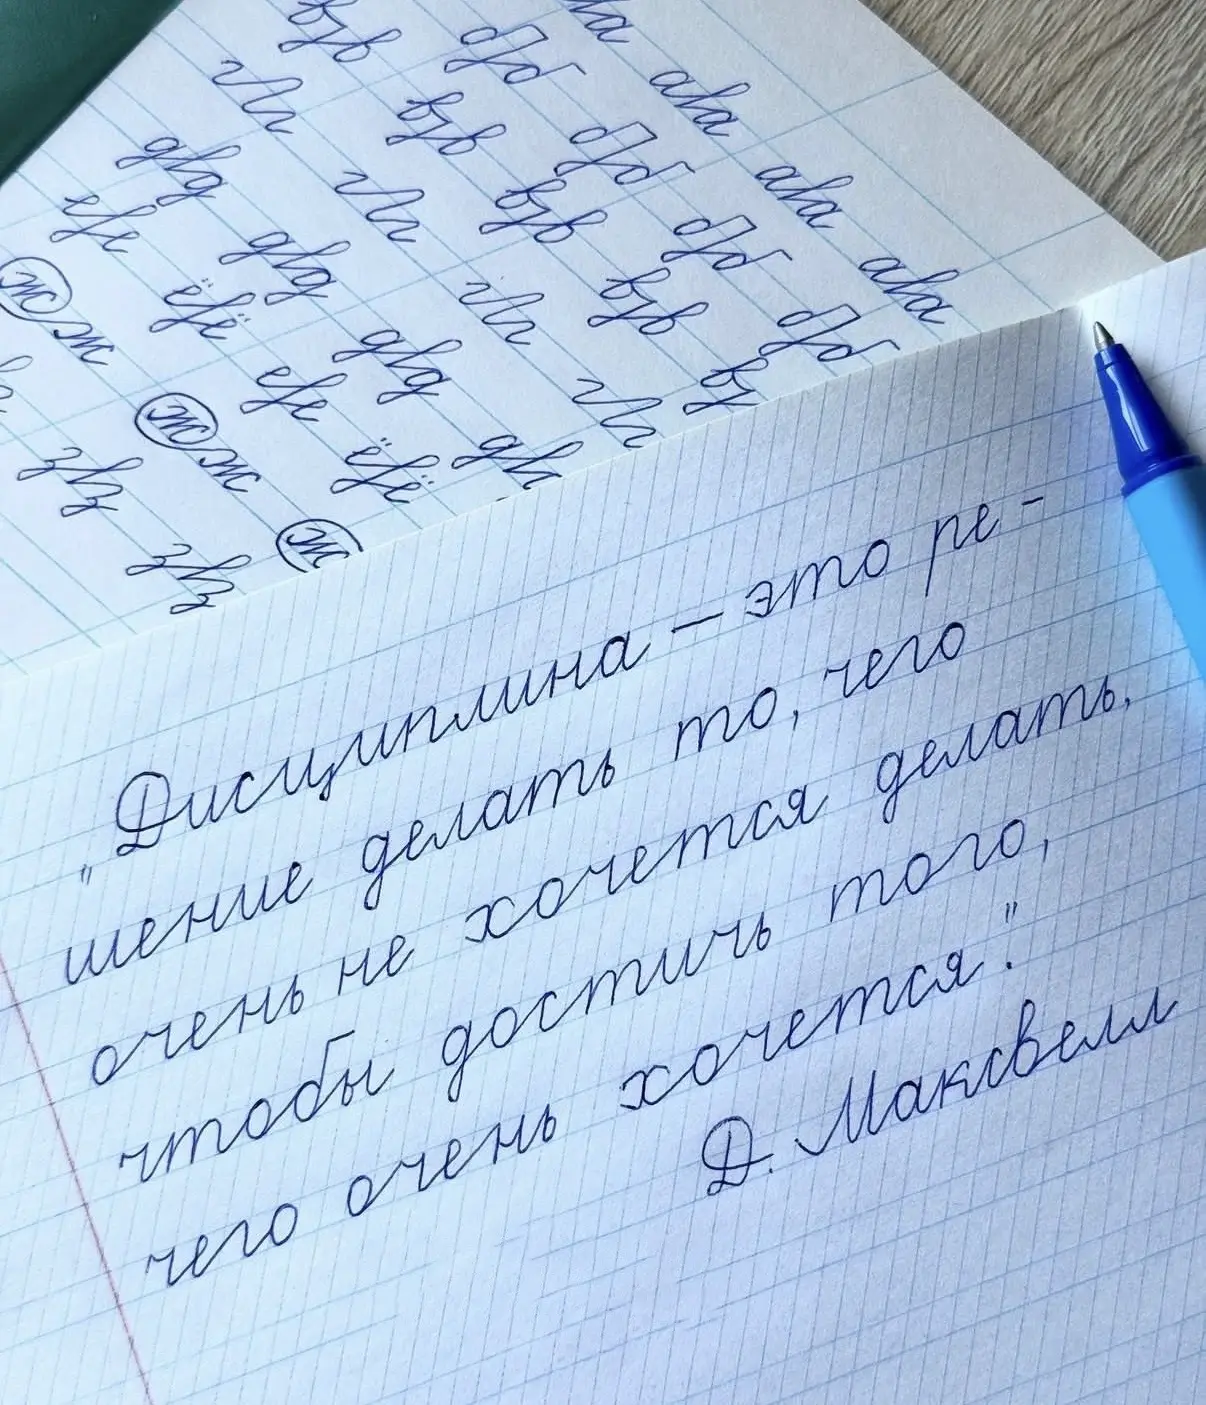 ава ава ава ава
бДб бДб бДб бДб
вјв вјв вјв вјв вј
гЛг гЛг гЛг гЛг
дļд дļд дļд дļ
еfе ёfё еfе ёfё
ж ж ж ж ж
зļз зļз
„Дисциплина – это ре-
шение делать то, чего
очень не хочется делать,
чтобы достичь того,
чего очень хочется."
Д. Максвелл